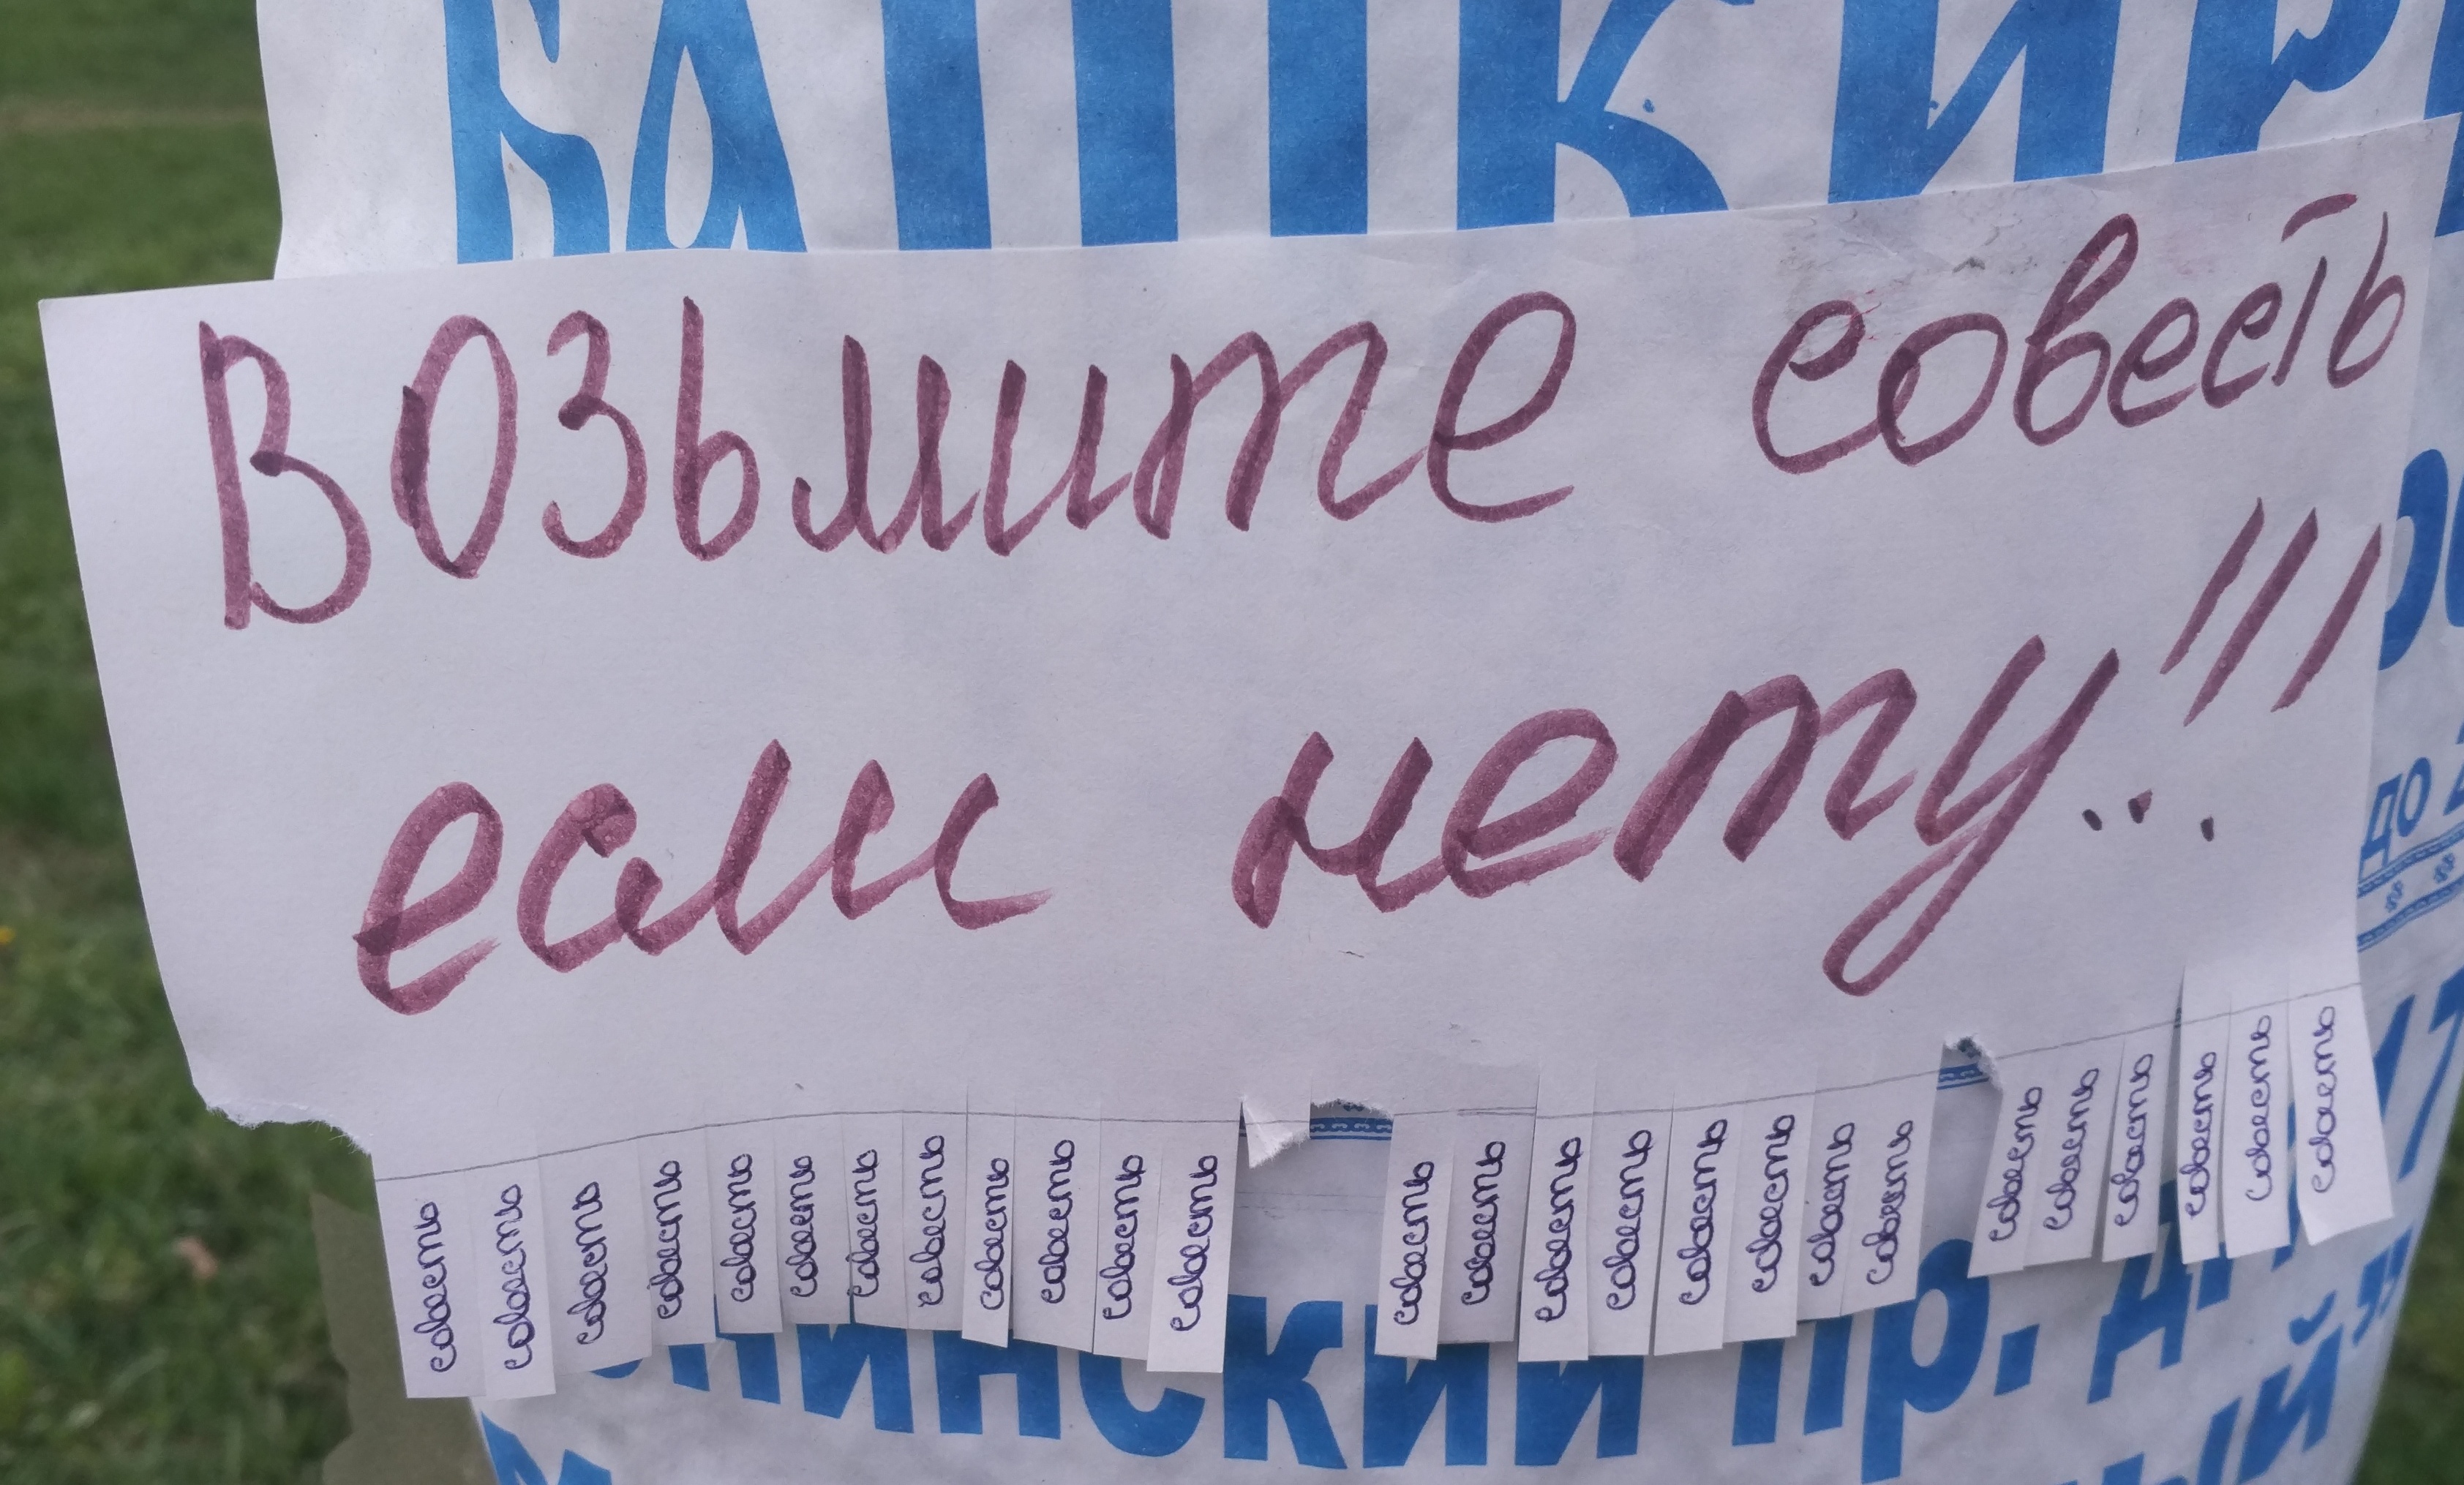 Возьмите совесть
если нету!!!
совесть
совесть
совесть
совесть
совесть
совесть
совесть
совесть
совесть
совесть
совесть
совесть
совесть
совесть
совесть
совесть
совесть
совесть
совесть
совесть
совесть
совесть
совесть
совесть
совесть
совесть
пр. д.